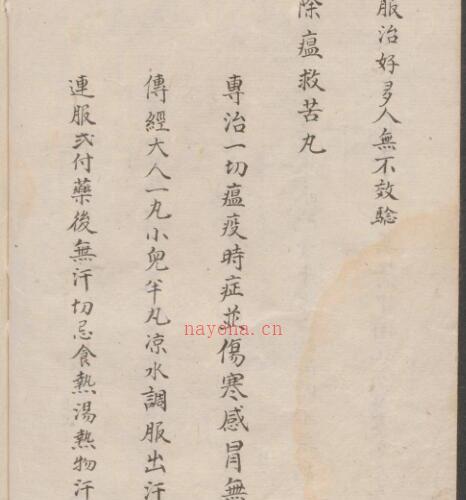 服治好多人無不效驗
除瘟救苦丸
專治一切瘟疫時症並傷寒感冒無
傳經大人一丸小兒半丸凉水調服出汗
連服弍付藥後無汗切忌食熱湯熱物汗
nayona.cn